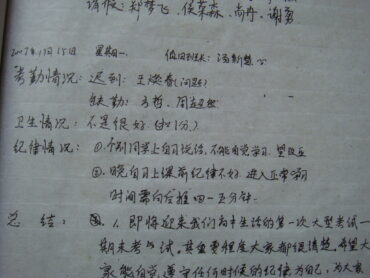 请假:郑梦飞、侯荣森、尚丹、谢勇
2007年1月15日 星期一 值周班长:冯新慧
考勤情况:迟到:王焕春(问题)
缺勤:方哲、周
卫生情况:不是很好(扣1分)
纪律情况:①个别同学上自习说话,不能自觉学习,望改正
②晚自习上课前纪律不好,进入正常学习
时间需向后推四—五分钟.
总 结:1、即将迎来我们高中生活的第一次大型考试—
期末考试,其重要程度大家都很清楚,希望大
家能自觉遵守任何时候的纪律,为自己,为大家